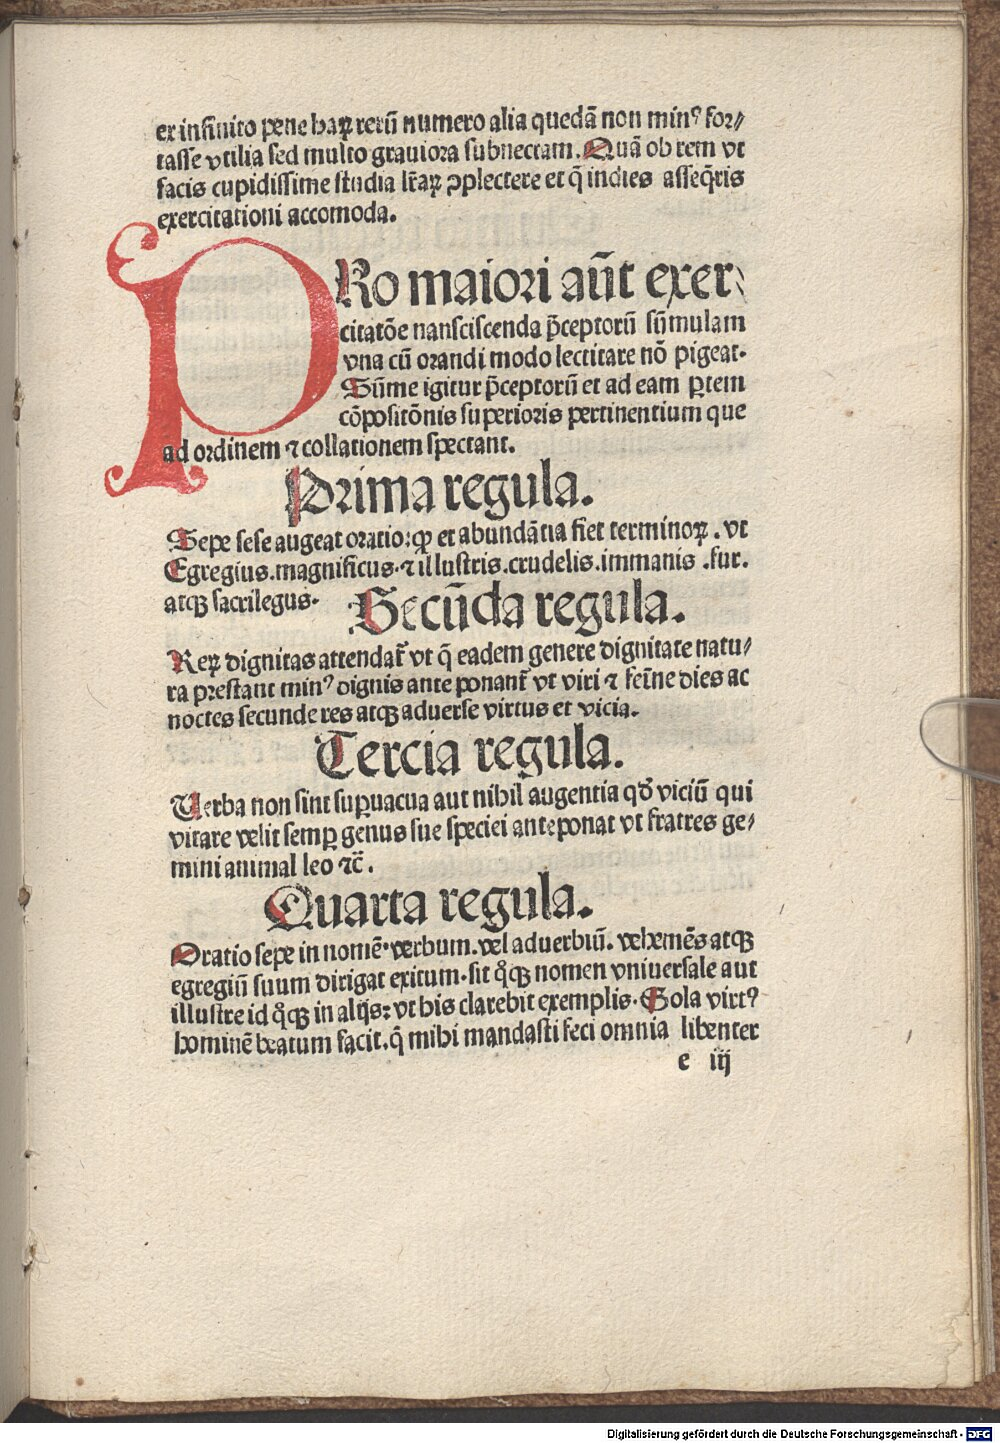 ex infinito pene haꝝ rerū numero alia quedā non minꝰ for⸗
tasse vtilia sed multo grauiora subnectam. Quā ob rem vt
facis cupidissime studia lr̄aꝝ ꝯplectere et q̄ indies asseq̄ris
exercitationi accomoda.
PRo maiori aūt exer⸗
citatōe nansciscenda p̄ceptorū sūmulam
vna cū orandi modo lectitare nō pigeat.
Sūme igitur p̄ceptorū et ad eam ꝑtem
cōpositōnis superioris pertinentium que
ad ordinem ⁊ collationem spectant.
Prima regula.
Sepe sese augeat oratio: ꝙ et abundātia fiet terminoꝝ. vt
Egregius. magnificus. ⁊ illustris. crudelis. immanis. fur.
atqꝫ sacrilegus.
Secūda regula.
Reꝝ dignitas attendat̄ vt q̄ eadem genere dignitate natu⸗
ra prestant minꝰ dignis ante ponant̄ vt viri ⁊ feīne dies ac
noctes secunde res atqꝫ aduerse virtus et vicia.
Tercia regula.
Verba non sint suꝑuacua aut nihil augentia qd̄ viciū qui
vitare velit semꝑ genus sue speciei anteponat vt fratres ge⸗
mini animal leo ⁊c̄.
Quarta regula.
Oratio sepe in nomē. verbum. vel aduerbiū. vehemēs atqꝫ
egregiū suum dirigat exitum. sit qͦqꝫ nomen vniuersale aut
illustre id qͦqꝫ in alijs: vt his clarebit exemplis. Sola virtꝰ
hominē beatum facit. q̄ mihi mandasti feci omnia libenter
e iij
Digitalisierung gefördert durch die Deutsche Forschungsgemeinschaft - DFG